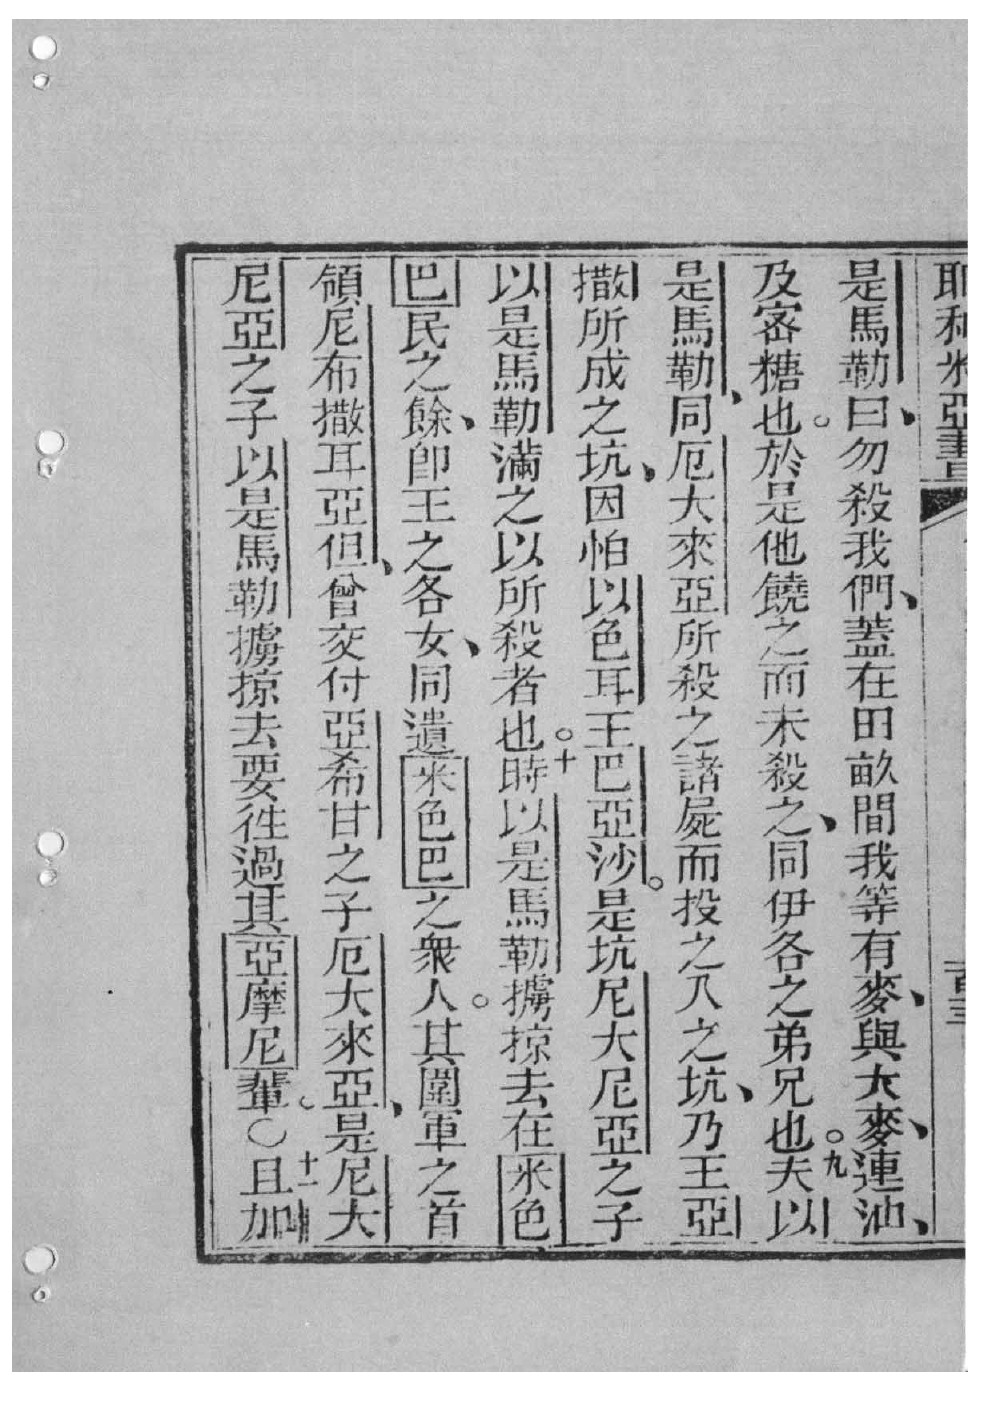 耶利米亞書 百三
是馬勒曰勿殺我們蓋在田畝間我等有麥與大麥連油
及密糖也。於是他饒之而未殺之同伊各之弟兄也。九夫以
是馬勒同厄大來亞所殺之諸屍而投之入之坑乃王亞
撒所成之坑因怕以色耳王巴亞沙。是坑尼大尼亞之子
以是馬勒滿之以所殺者也。十時以是馬勒擄掠去在米色
巴民之餘卽王之各女同遺米色巴之衆人。其圍軍之首
領尼布撒耳亞但曾交付亞希甘之子厄大來亞是尼大
尼亞之子以是馬勒擄掠去要徃過其亞摩尼輩。○十一且加